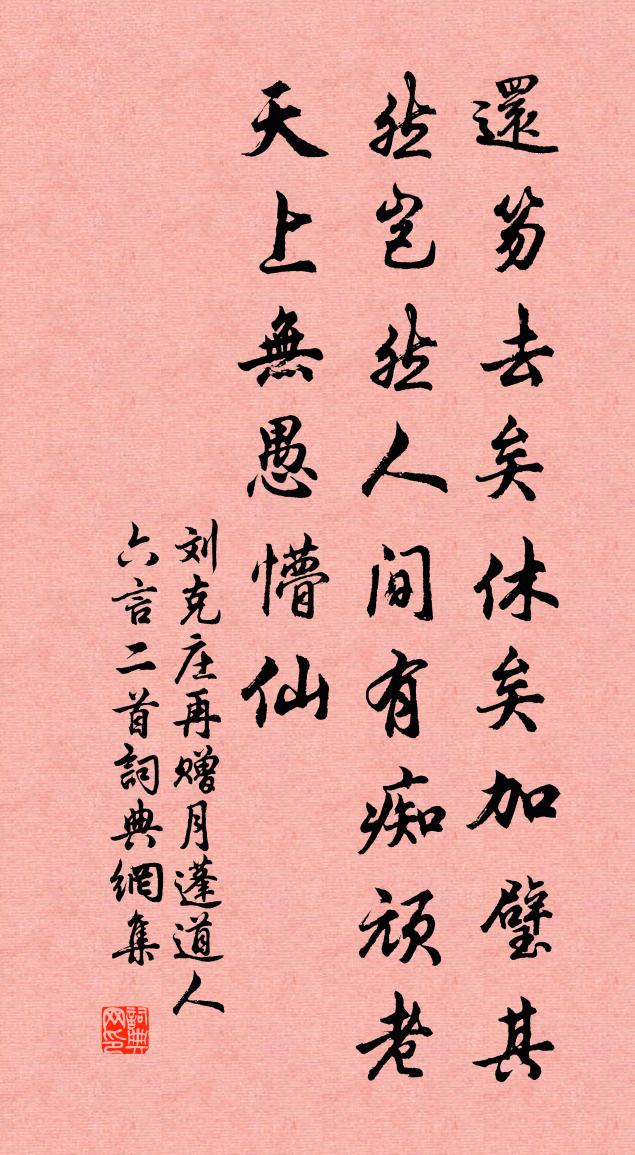 還笏去矣休矣加璧其
然豈然人間有痴頑老
天上無愚懵仙
刘克庄再赠月蓬道人
六言二首詞典網集
詞典网印